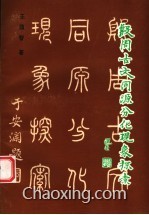 殷周古文同源分化現象探索
殷周古文
同原分化
現象探索
于安瀾題
Chaoxing.com